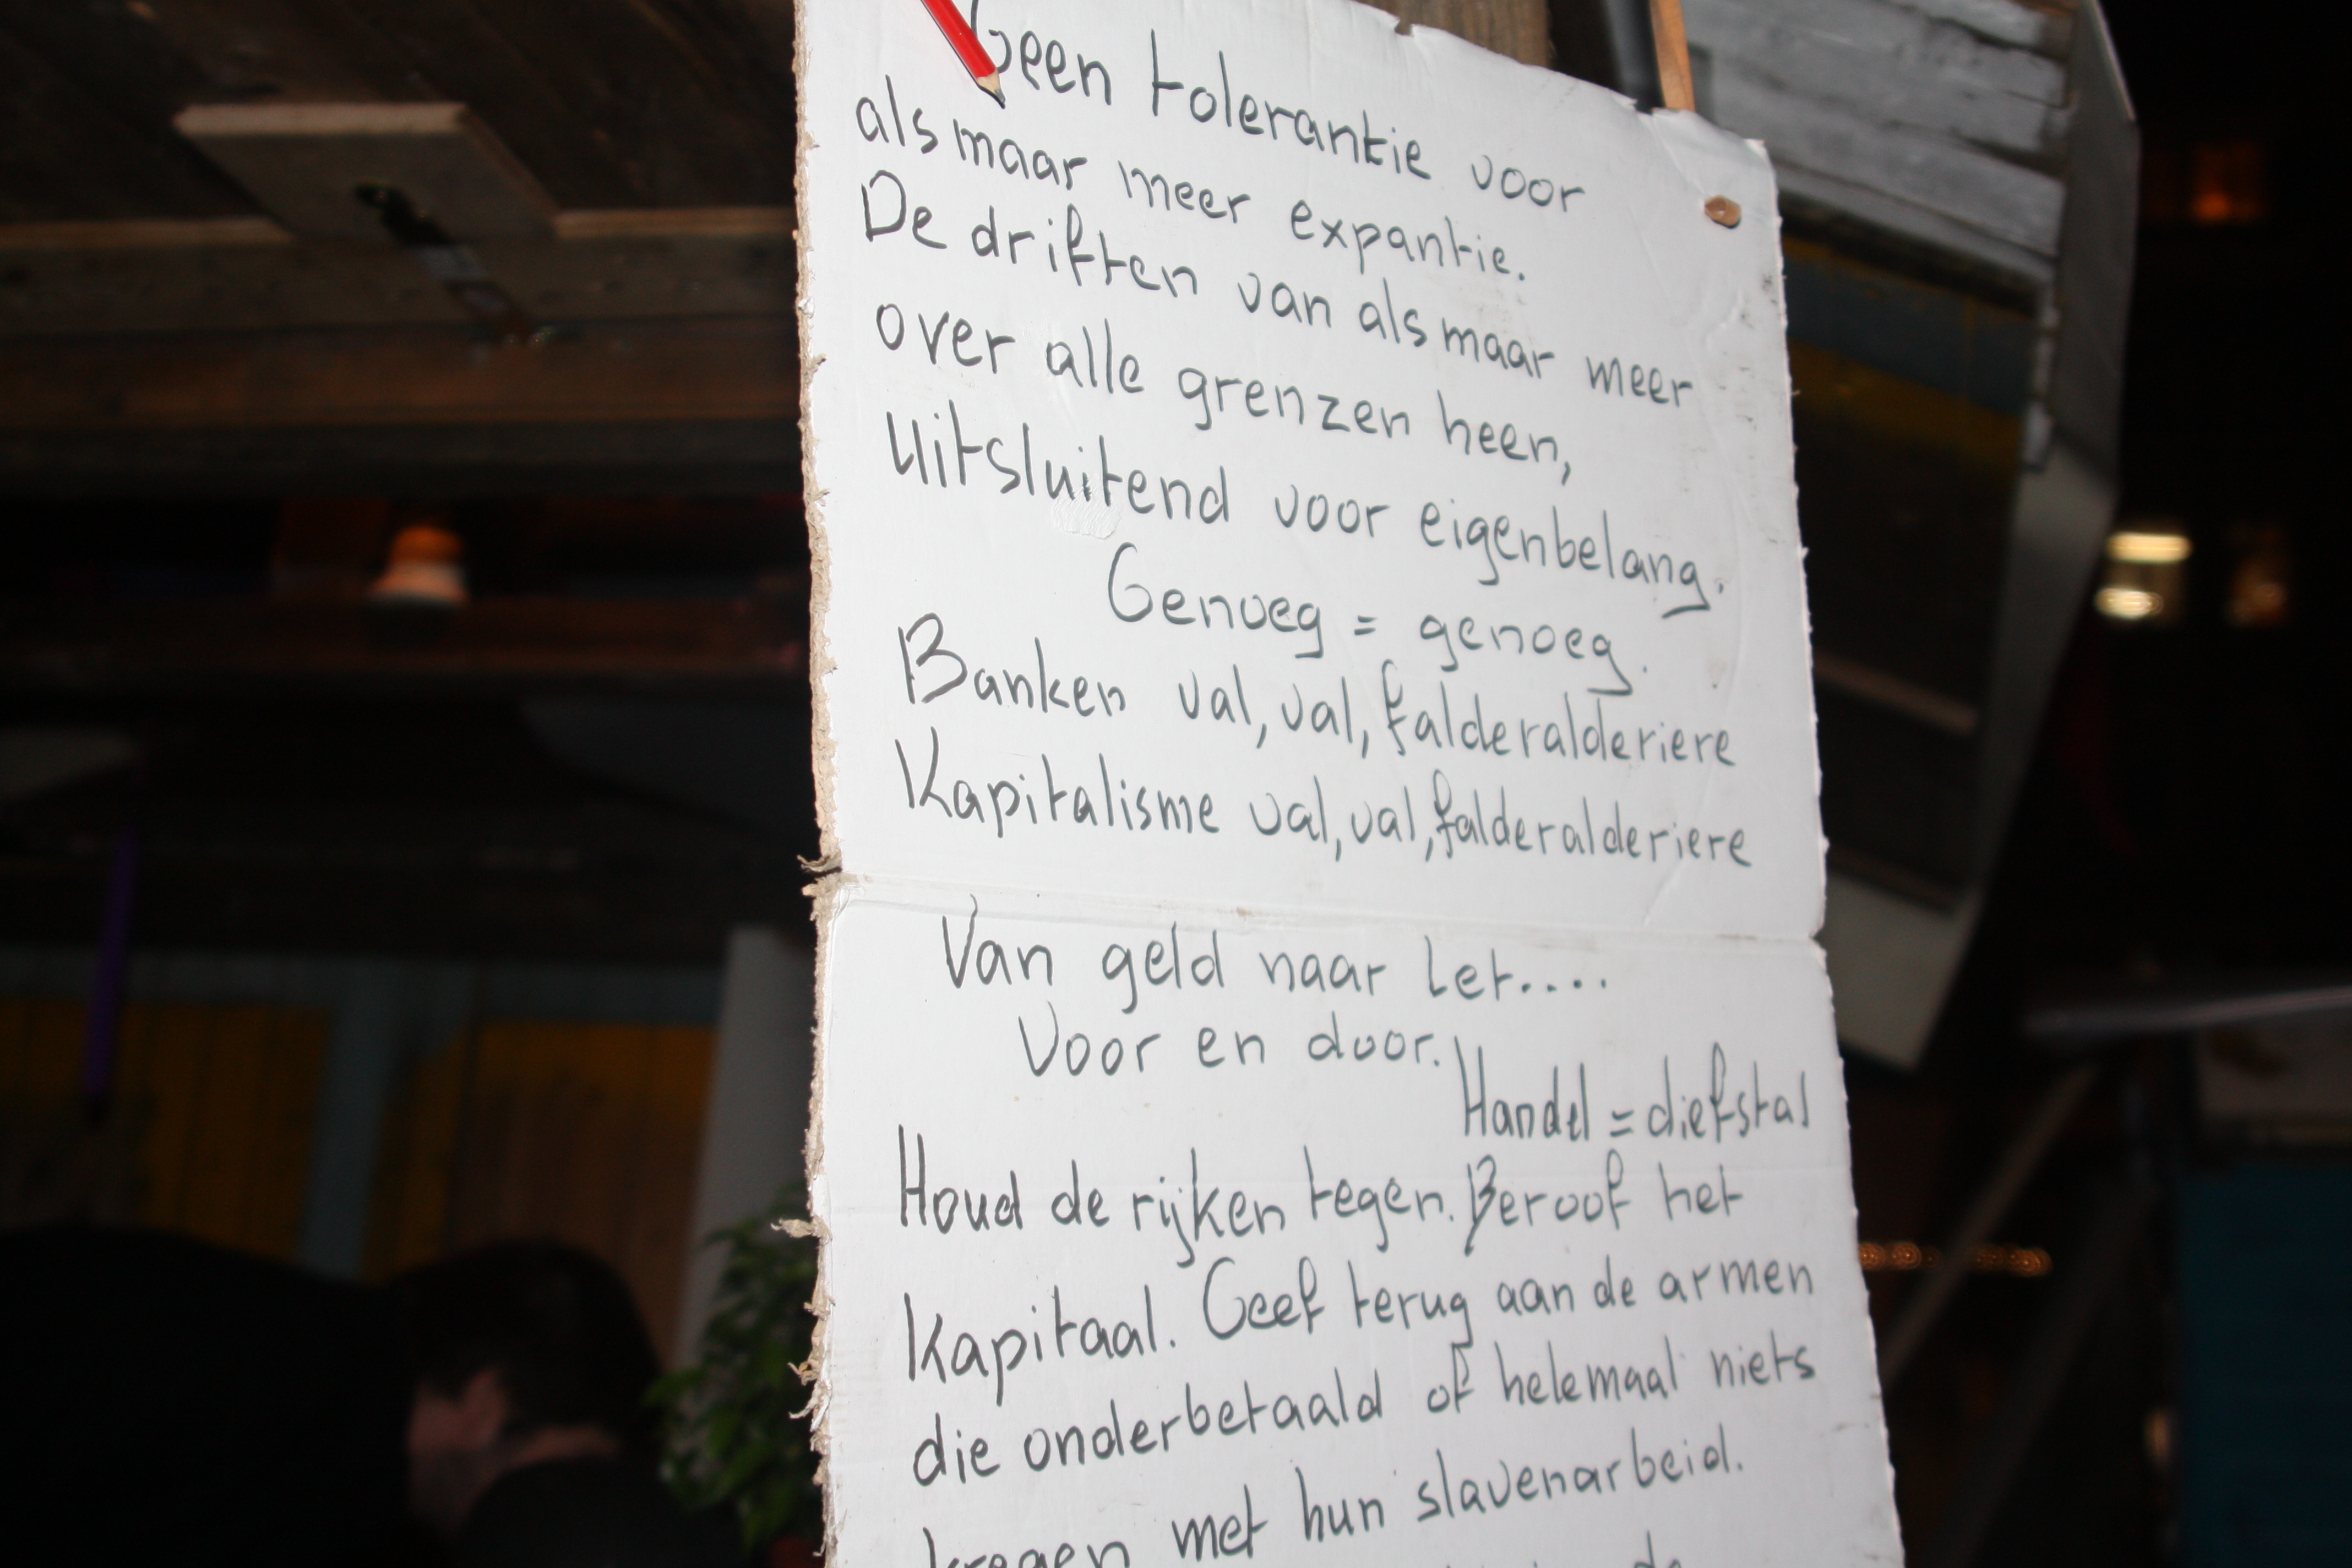 Geen tolerantie voor
als maar meer expantie.
De driften van als maar meer
over alle grenzen heen,
Uitsluitend voor eigenbelang.
Genoeg = genoeg.
Banken val, val, falderalderiere
Kapitalisme val, val, falderalderiere
Van geld naar Let....
Voor en door.
Handel = diefstal
Houd de rijken tegen. Beroof het
Kapitaal. Geef terug aan de armen
die onderbetaald of helemaal niets
kregen met hun slavenarbeid.
de